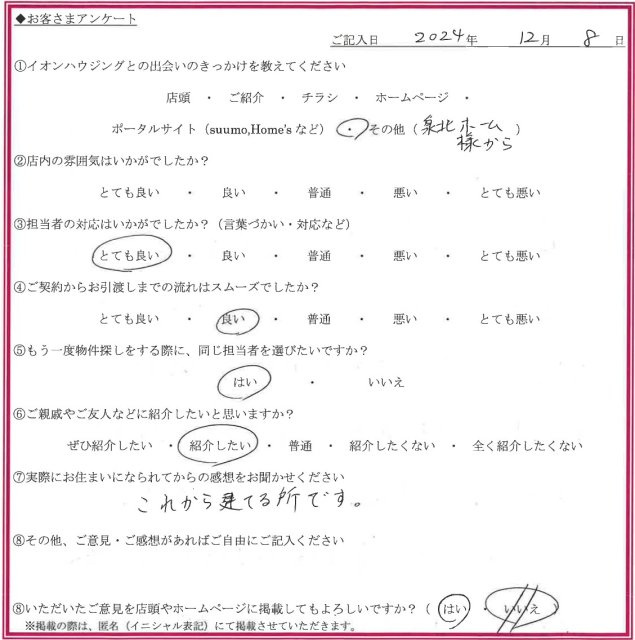 ◆お客さまアンケート
ご記入日 2024年 12月 8日
①イオンハウジングとの出会いのきっかけを教えてください
店頭 ・ ご紹介 ・ チラシ ・ ホームページ ・
ポータルサイト（suumo,Home'sなど） ・ その他（泉北ホーム様から）
②店内の雰囲気はいかがでしたか？
とても良い ・ 良い ・ 普通 ・ 悪い ・ とても悪い
③担当者の対応はいかがでしたか？（言葉づかい・対応など）
とても良い ・ 良い ・ 普通 ・ 悪い ・ とても悪い
④ご契約からお引渡しまでの流れはスムーズでしたか？
とても良い ・ 良い ・ 普通 ・ 悪い ・ とても悪い
⑤もう一度物件探しをする際に、同じ担当者を選びたいですか？
はい ・ いいえ
⑥ご親戚やご友人などに紹介したいと思いますか？
ぜひ紹介したい ・ 紹介したい ・ 普通 ・ 紹介したくない ・ 全く紹介したくない
⑦実際にお住まいになられてからの感想をお聞かせください
これから建てる所です。
⑧その他、ご意見・ご感想があればご自由にご記入ください
⑧いただいたご意見を店頭やホームページに掲載してもよろしいですか？（ はい ・ いいえ ）
※掲載の際は、匿名（イニシャル表記）にて掲載させていただきます。